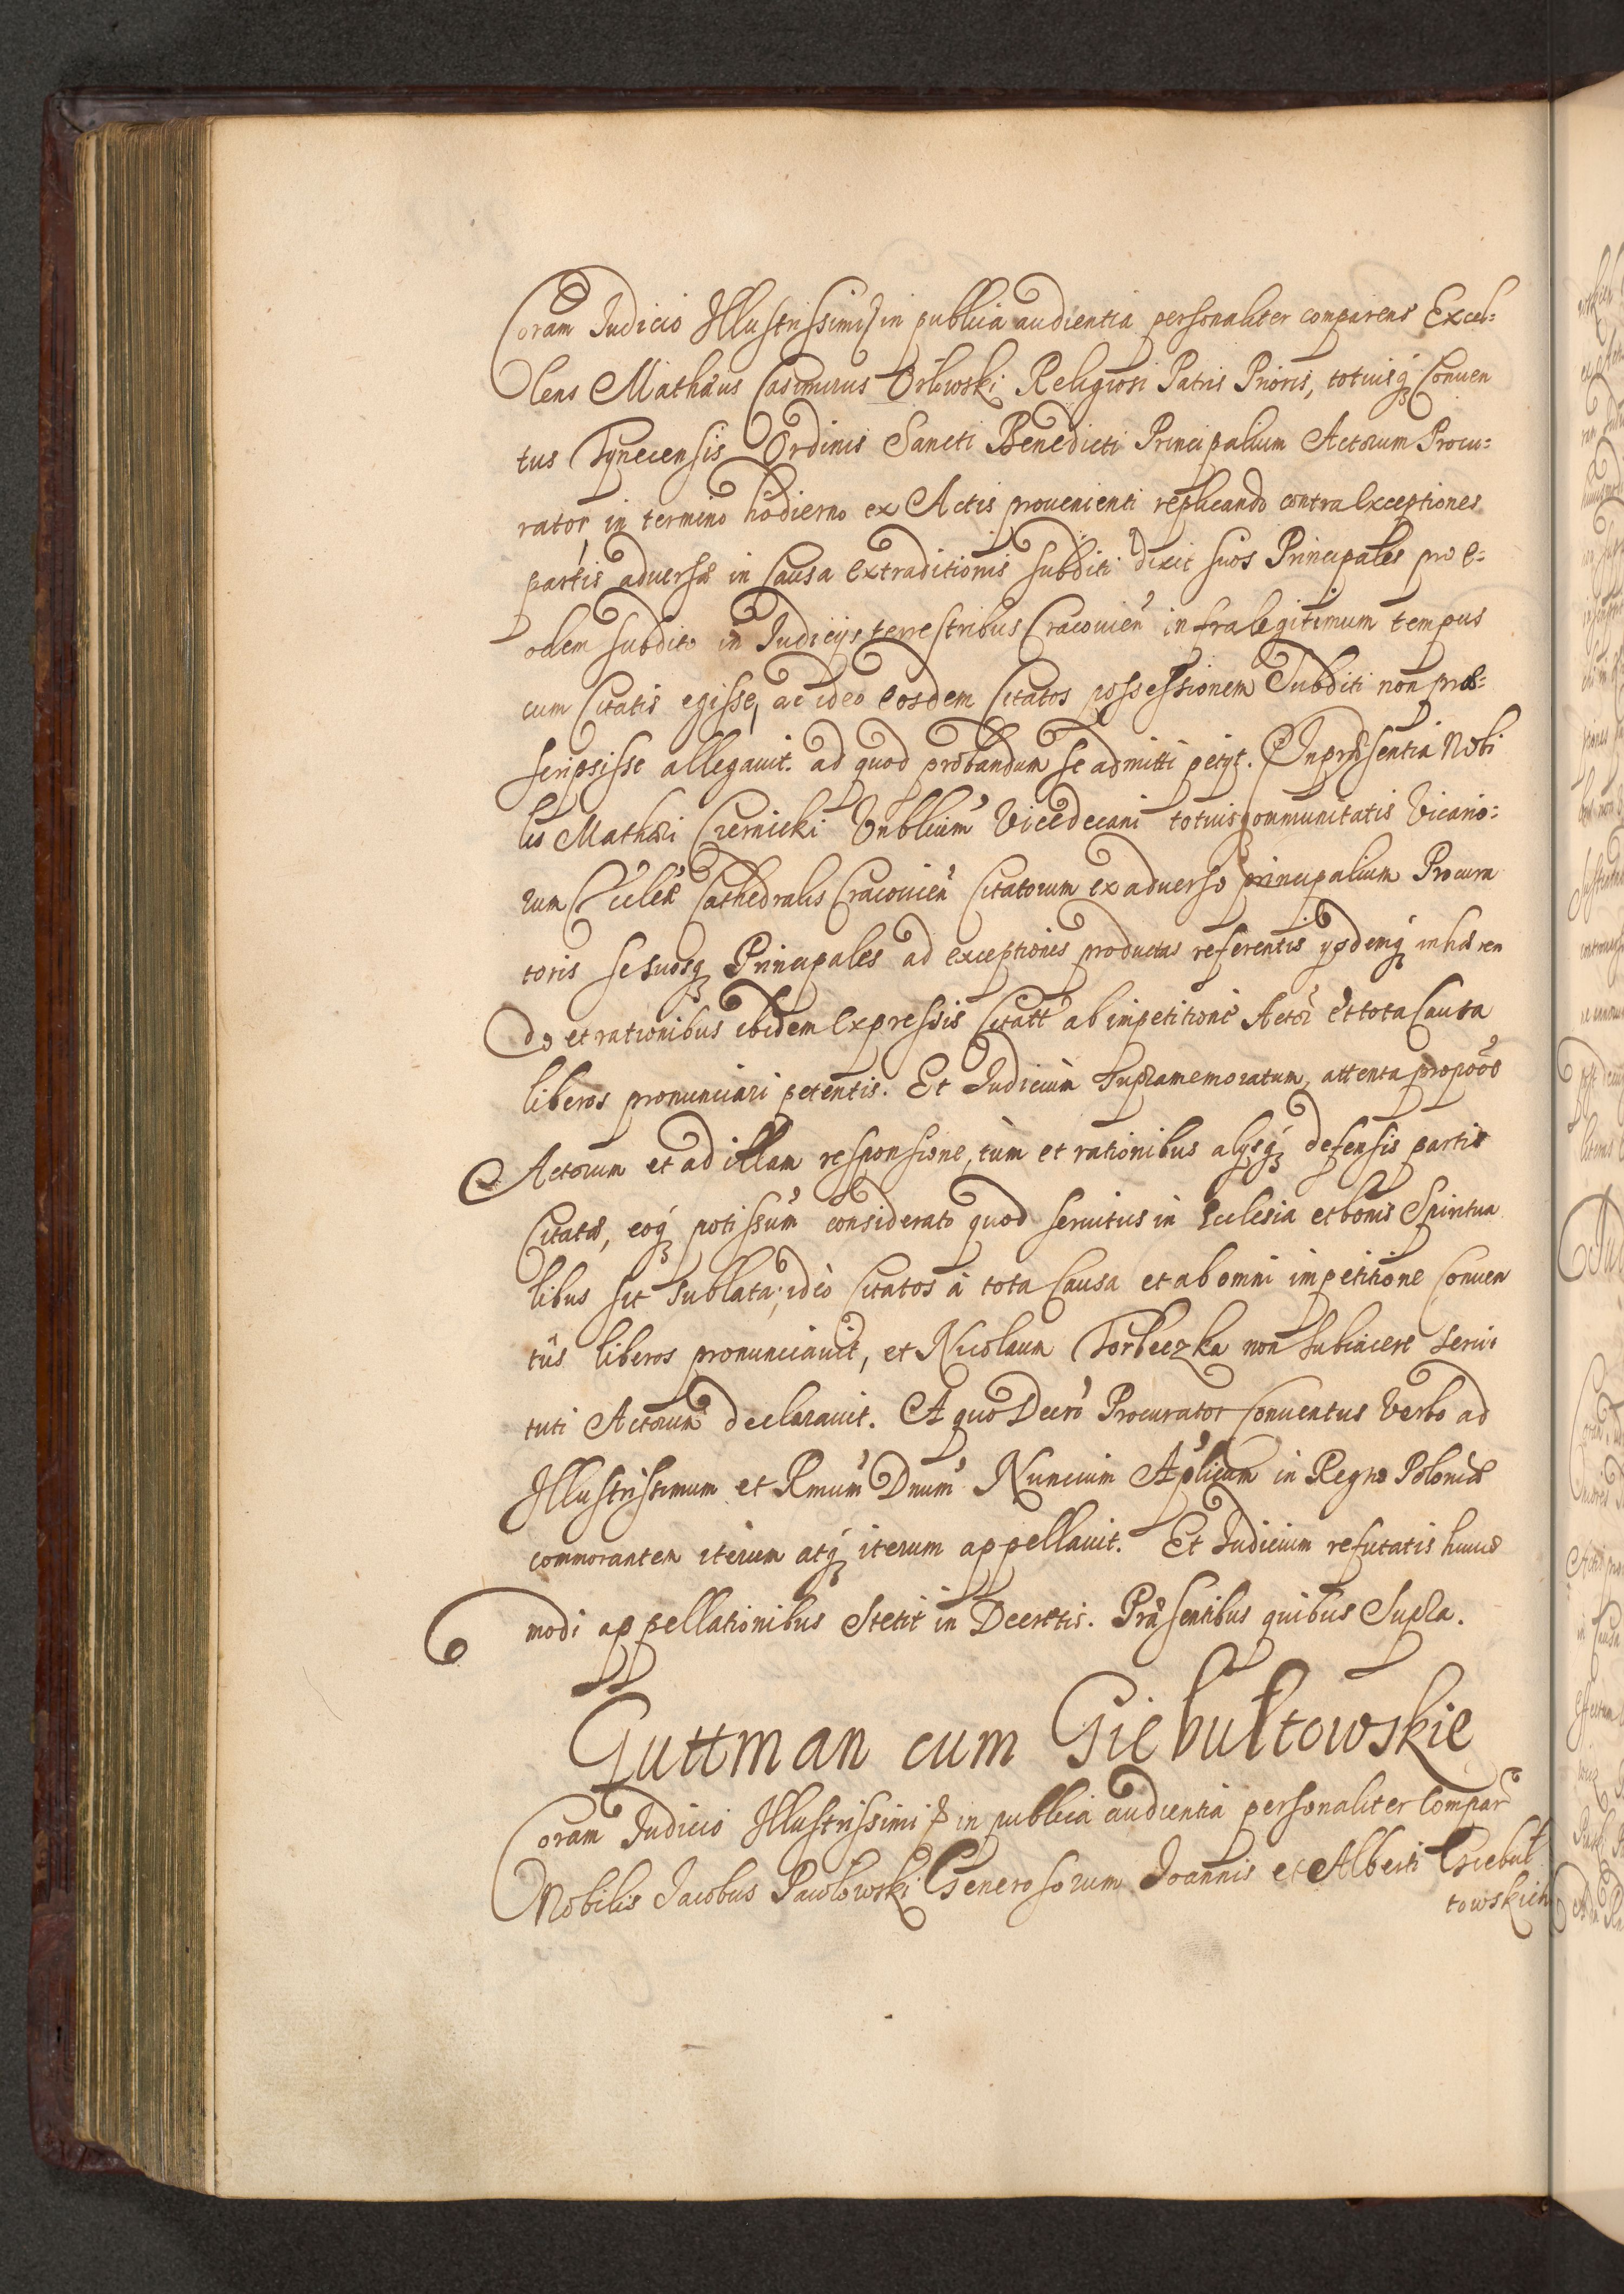 Coram Judicio Illustrissimi in publica audientia personaliter comparens Excel=
lens Mathæus Casimirus Orłowski Religiosi Patris Prioris, totiusq₃ Conuen
tus Tynecensis Ordinis Sancti Benedicti Principalium Actorum Procu=
rator, in termino hodierno ex Actis prouenienti replicando contra Exceptiones
partis aduersæ in Causa Extraditionis Subditi dixit suos Principales pro e=
odem subdito in Judicijs terrestribus Cracouien̄ infra legitimum tempus
cum Citatis egisse, ac ideo eosdem Citatos possessionem Subditi non præ=
scripsisse allegauit. ad quod probandum se admitti petijt. In præsentia Nobi
lis Mathæi Czernicki Vnblicum̄ Vicedecani totiusq₃ Communitatis Vicario=
rum Eccleæ Cathedralis Cracouien̄ Citatorum ex aduerso principalium Procura
toris se suosq₃ Principales ad exceptiones productas referentis ijsdemq₃ inhæren
do et rationibus ibidem Expressis Citatt ab impetitione Actor̄ et tota Causa
liberos pronunciari petentis. Et Judicium Supramemoratum, attenta propōōe
Actorum et ad illam responsione, tùm et rationibus alijsq₃ defensis partis
Citatæ, eoq₃ potissum̄ considerato quod seruitus in Ecclesia et bonis Spiritua
libus sit sublata; ideò Citatos à tota Causa et ab omni impetitione Conuen
tûs liberos pronunciauit, et Nicolaum Torbeczka non Subiacere Serui
tuti Actorum declarauit. A quo Decrō Procurator Conuentus Verbo ad
Illustrissimum et Rmum̄ Dnum̄ Nuncium Aplicum in Regno Poloniæ
commorantem iterum atq₃ iterum appellauit. Et Judicium refutatis huius
modi appellationibus Stetit in Decretis. Præsentibus quibus Supra.
Guttman cum Giebułtowskie
Coram Judicio Illustrissimi in publica audientia personaliter Compar̄
Nobilis Jacobus Pawłowski Generosorum Joannis et Alberti Giebuł
towskich